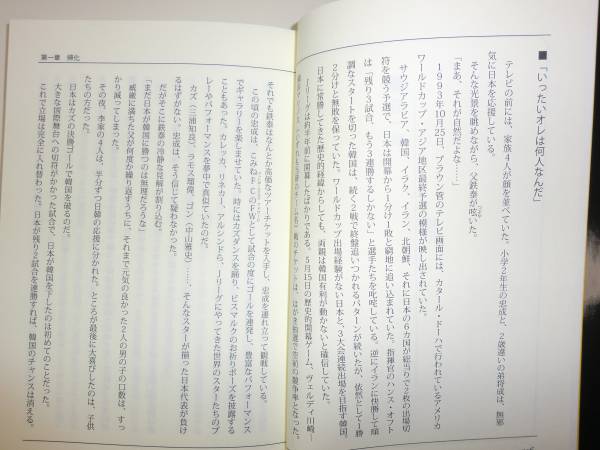 ■「いったいオレは何人なんだ」
テレビの前には、家族4人が顔を並べていた。小学2年生の忠成は、2歳違いの弟将成は、無邪
気に日本を応援している。
そんな光景を眺めながら、父鉄泰が呟いた。
「まあ、それが自然だよな……」
1993年10月25日、ブラウン管のテレビ画面には、カタール・ドーハで行われているアメリカ
ワールドカップ・アジア地区最終予選の模様が映し出されていた。
サウジアラビア、韓国、イラク、イラン、北朝鮮、それに日本の6カ国が総当りで2枚の出場切
符を競う予選で、日本は開幕から1分け1敗と窮地に追い込まれていた。指揮官のハンス・オフト
は「残り3試合、もう3連勝するしかない」と選手たちを叱咤している。逆にイランに快勝して順
調なスタートを切った韓国は、続く2戦で終盤追いつかれるパターンが続いたが、依然として1勝
2分けと無敗を保っていた。ワールドカップ出場経験がない日本と、3大会連続出場を目指す韓国。
日本に常勝してきた歴史的経緯からしても、両親は韓国有利が動かないと確信していた。
Jリーグは約半年前に開幕したばかりである。5月15日の歴史的開幕ゲーム、ヴェルディ川崎―
第一章 帰化
それでも鉄泰はなんとか高価なツアーチケットを入手し、忠成を連れ立って観戦している。
この頃の忠成は、こみねFCの一員として試合の度にゴールを連発し、豊富なパフォーマンス
でギャラリーを楽しませていた。時にはカズダンスを踊り、ビスマルクのお祈りポーズを披露する
こともあった。カレッカ、リネカー、アルシンドら、Jリーグにやってきた世界のスターたちのプ
レーやパフォーマンスを夢中で真似ていたのだ。
カズ（三浦知良）、ラモス瑠偉、ゴン（中山雅史）……、そんなスターが揃った日本代表が負け
るはずがない。忠成は、そう信じて疑わなかった。
だがそこに鉄泰の冷静な見解が割り込む。
「まだ日本が韓国に勝つのは無理だろうな」
威厳に満ちた父が何度か繰り返すうちに、それまで元気の良かった2人の男の子の口数は、すっ
かり減ってしまった。
その夜、李家の4人は、半分ずつ日韓の応援に分かれた。ところが最後に大喜びしたのは、子供
たちの方だった。
日本はカズの決勝ゴールで韓国を破るのだ。
大きな国際舞台への切符がかかった試合で、日本が韓国を下したのは初めてのことだった。
これで立場は完全に入れ替わった。日本が残り2試合を連勝すれば、韓国のチャンスは消える。